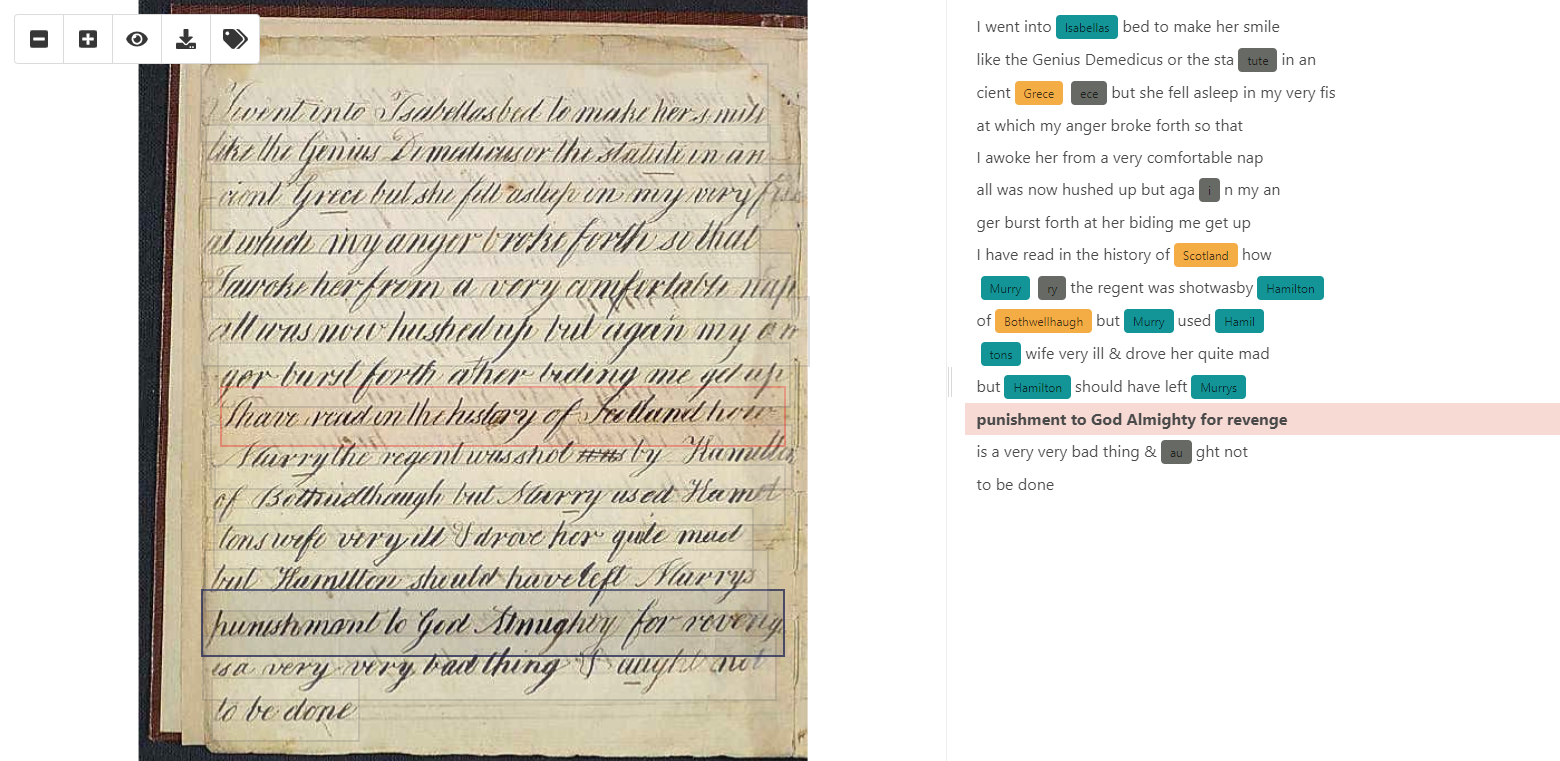 I went into Isabellas bed to make her smile
like the Genius Demedicus or the statute in an
cient Grece but she fell asleep in my very fis
at which my anger broke forth so that
I awoke her from a very comfortable nap
all was now hushed up but again my an
ger burst forth at her biding me get up
I have read in the history of Scotland how
Murry the regent was shot was by Hamilton
of Bothwellhaugh but Murry used Hamil
tons wife very ill & drove her quite mad
but Hamilton should have left Murrys
punishment to God Almighty for revenge
is a very very bad thing & aught not
to be done
I went into Isabellas bed to make her smile
like the Genius Demedicus or the sta tute in an
cient Grece ece but she fell asleep in my very fis
at which my anger broke forth so that
I awoke her from a very comfortable nap
all was now hushed up but aga i n my an
ger burst forth at her biding me get up
I have read in the history of Scotland how
Murry ry the regent was shotwasby Hamilton
of Bothwellhaugh but Murry used Hamil
tons wife very ill & drove her quite mad
but Hamilton should have left Murrys
punishment to God Almighty for revenge
is a very very bad thing & au ght not
to be done